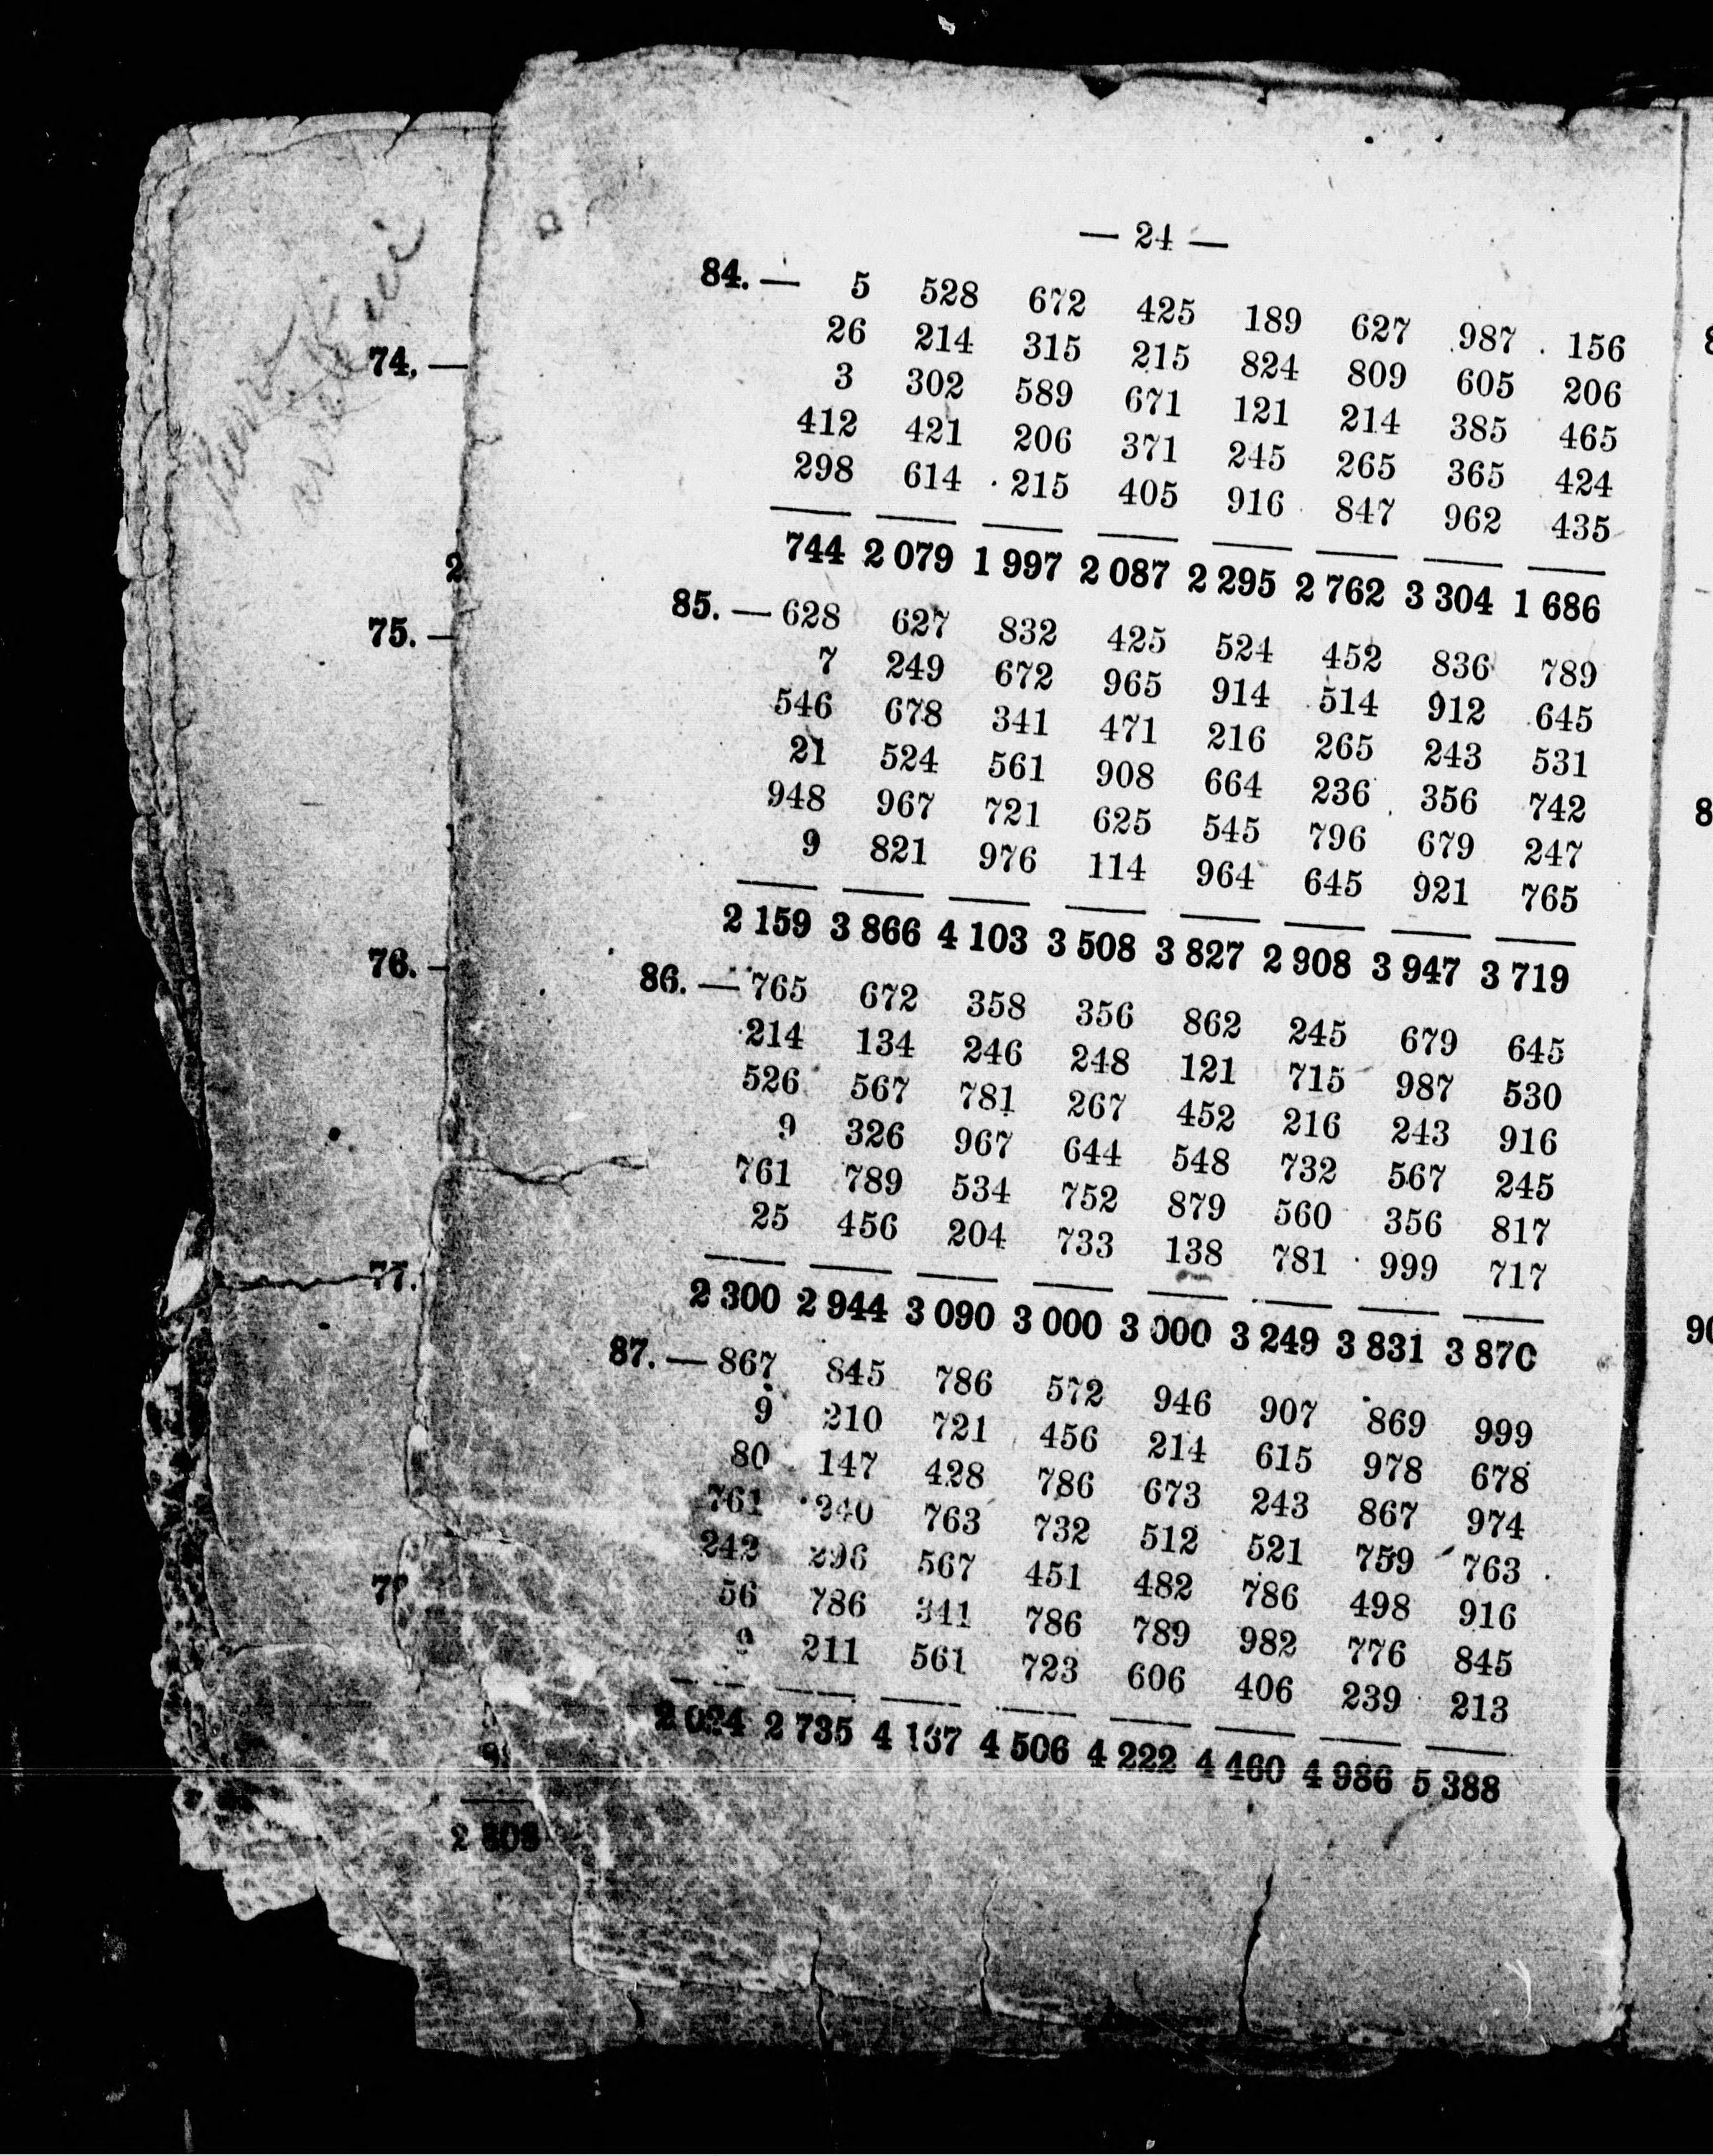 — 24 —
84. — 5 528 672 425 189 627 987 156
26 214 315 215 824 809 605 206
3 302 589 671 121 214 385 465
412 421 206 371 245 265 365 424
298 614 215 405 916 847 962 435
744 2 079 1 997 2 087 2 295 2 762 3 304 1 686
85. — 628 627 832 425 524 452 836 789
7 249 672 965 914 514 912 645
546 678 341 471 216 265 243 531
21 524 561 908 664 236 356 742
948 967 721 625 545 796 679 247
9 821 976 114 964 645 921 765
2 159 3 866 4 103 3 508 3 827 2 908 3 947 3 719
86. — 765 672 358 356 862 245 679 645
214 134 246 248 121 715 987 530
526 567 781 267 452 216 243 916
9 326 967 644 548 732 567 245
761 789 534 752 879 560 356 817
25 456 204 733 138 781 999 717
2 300 2 944 3 090 3 000 3 000 3 249 3 831 3 870
87. — 867 845 786 572 946 907 869 999
9 210 721 456 214 615 978 678
80 147 428 786 673 243 867 974
761 240 763 732 512 521 759 763
242 296 567 451 482 786 498 916
56 786 341 786 789 982 776 845
9 211 561 723 606 406 239 213
2 024 2 735 4 137 4 506 4 222 4 460 4 986 5 388
74. —
2
75. —
76. —
77.